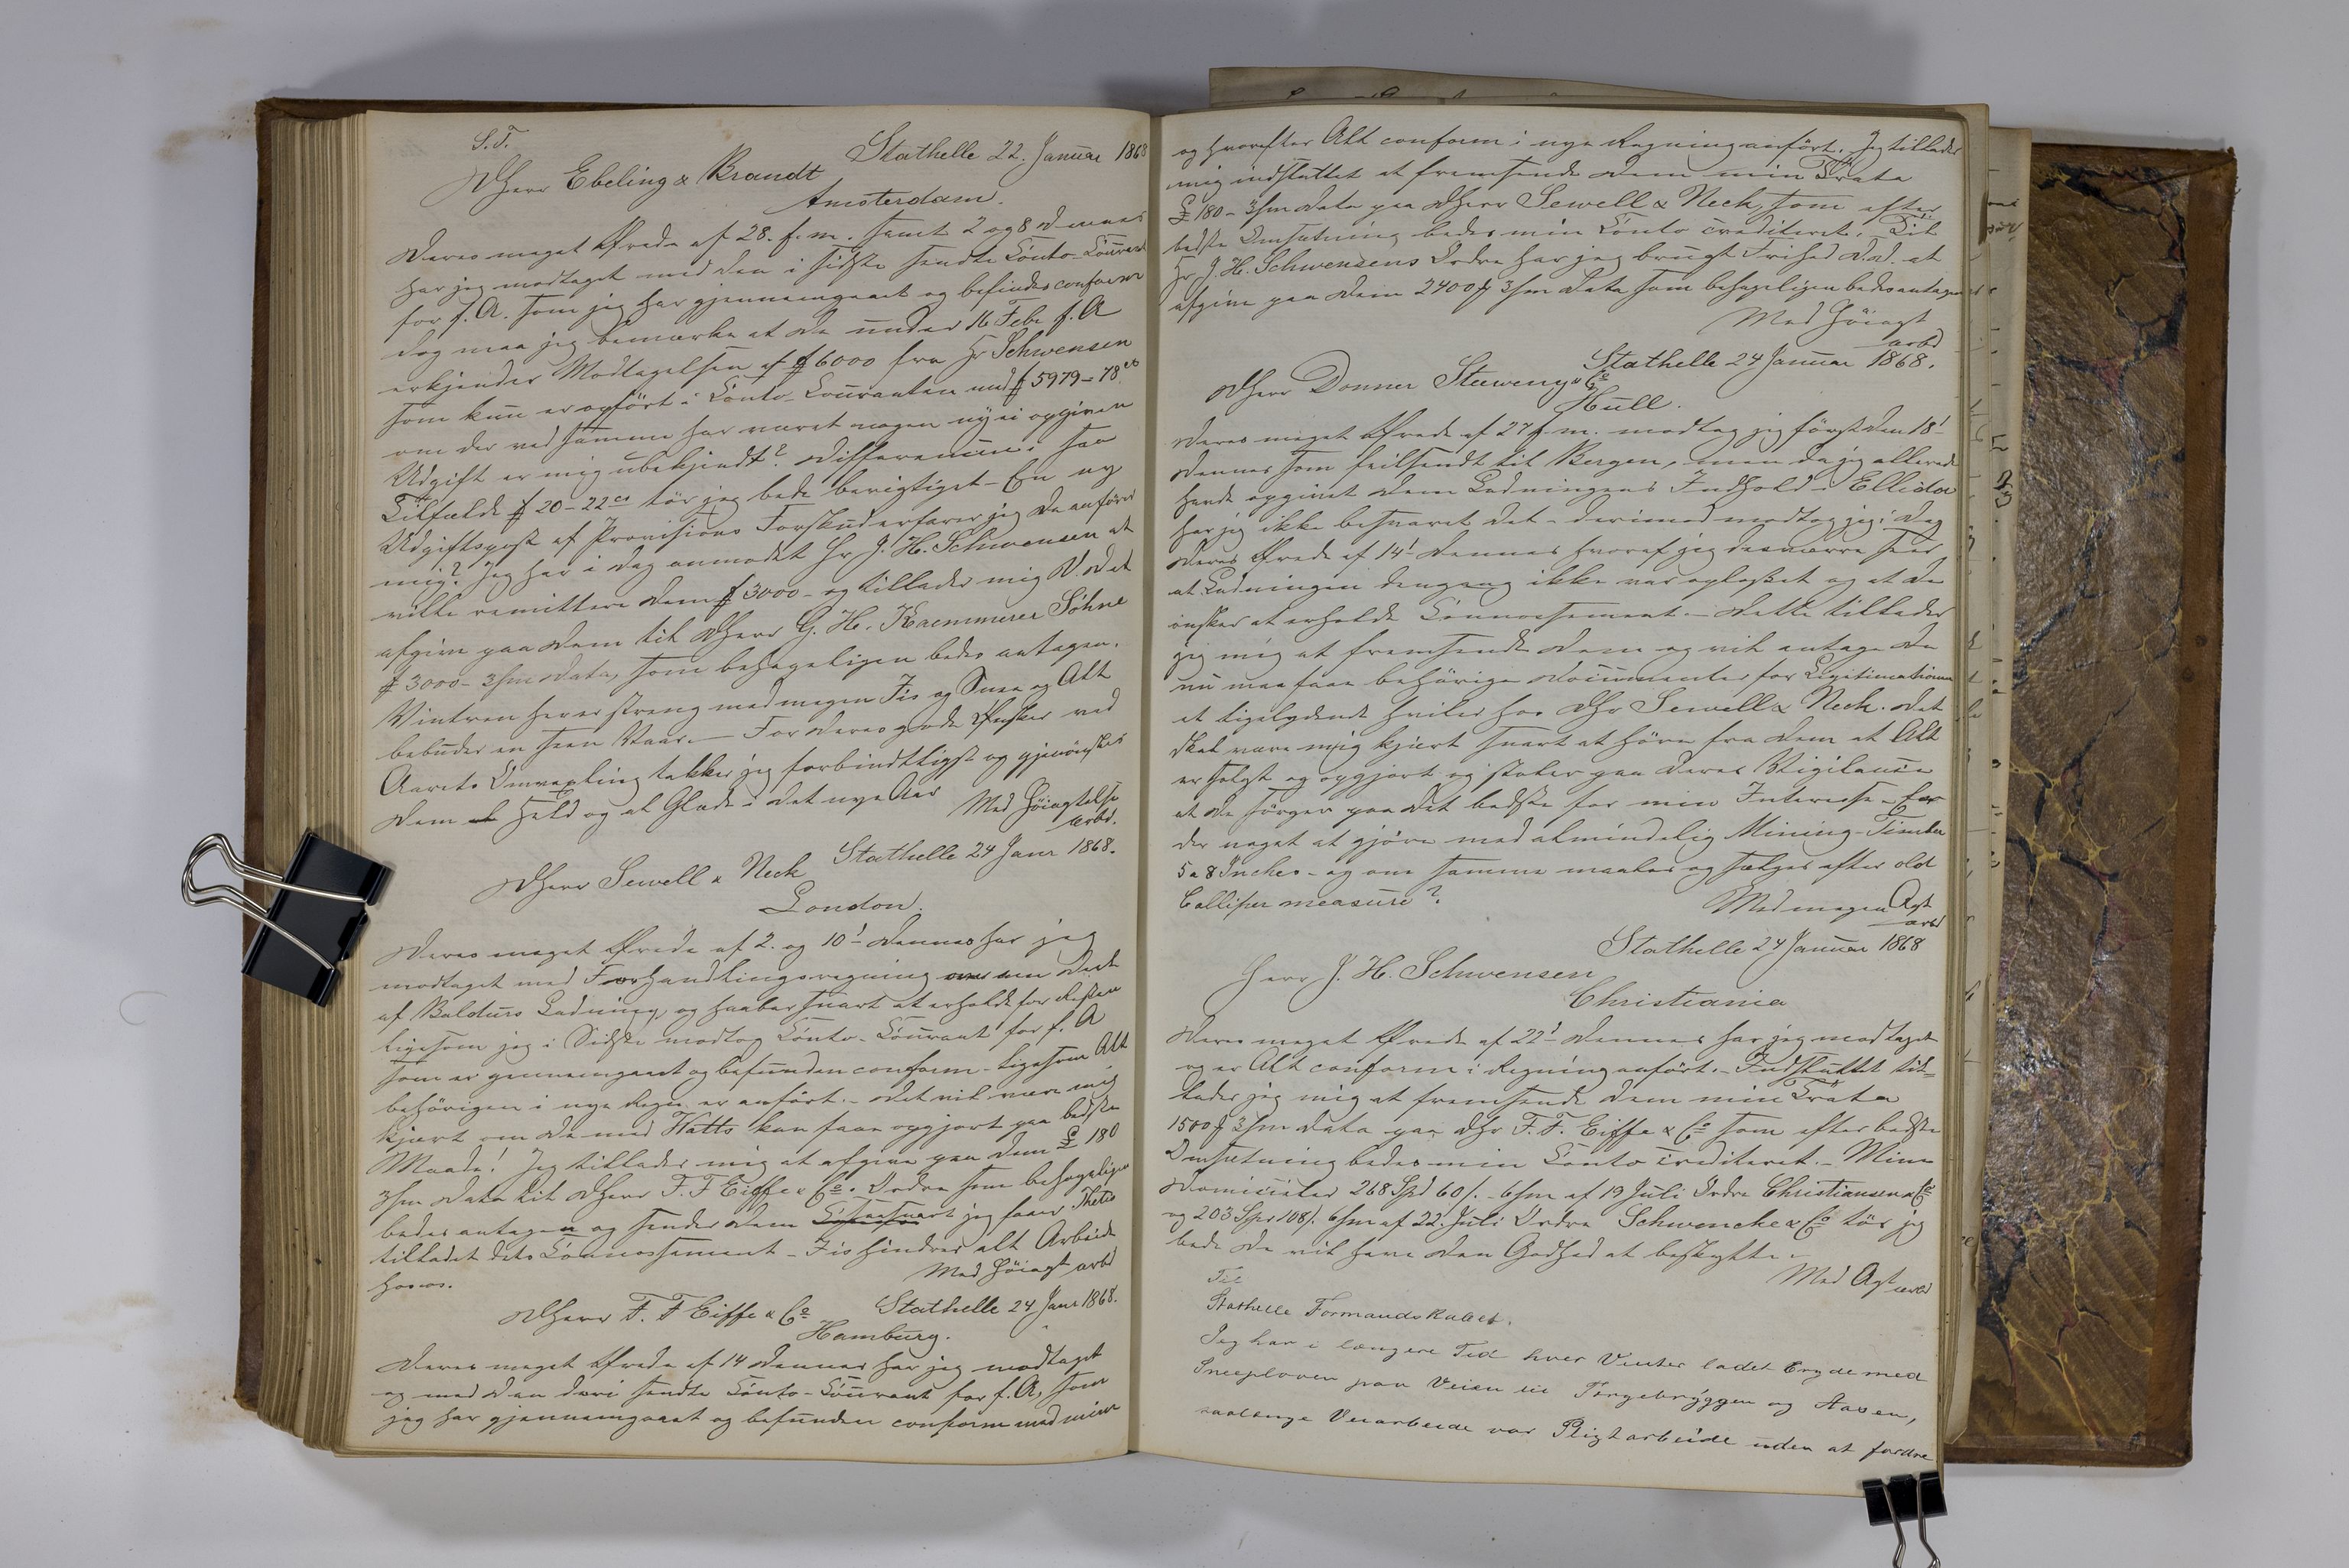 S.T.
Stathelle 22. Januar 1868
DHerr Ebeling & Brandt
Amsterdam.
Deres meget Ærede af 28. f. m. samt 2 og 8 dennes
har jeg modtaget med den i sidste sendte Conto-Courant
for f. A. som jeg har gjennemgaaet og befindes conform
dog maa jeg bemærke at De under 16 Febr f. A
erkjender Modtagelsen af f 6000 fra Hr Schwensen
som kun er opført i Conto-Couranten med f 5979-78cs
om der ved samme har været nogen myei opgiven
Udgift er mig ubekjendt? Differencen i saa
Tilfælde f 20-22cs tør jeg bede berigtiget - En ny
Udgiftspost af Provisions Forskud erfarer jeg De anfører
mig? Jeg har i Dag anmodet Hr J. H. Schwensen at
ville remittere Dem f 3000 - og tillader mig D. D. at
afgive paa Dem til DHerr G. H. Kaemmerer Söhne
f 3000 - 3/m Data, som behageligen bedes antagen.
Vintren her er streng med megen Iis og Snee og Alt
bebuder en seen Vaar. - For Deres gode Ønsker ved
Aarets Omvexling takker jeg forbindtligst og gjenønsker
Dem Held og al Glæde i det nye Aar
Med Høiagtelse
ærbd.
Stathelle 24 Janr 1868.
DHerr Sewell & Neck
London.
Deres meget Ærede af 2. og 10' dennes har jeg
modtaget med Forhandlingsregning over en Deel
af Baldurs Ladning, og haaber snart at erholde for Resten
ligesom jeg i Sidste modtog Conto-Courant for f. A
som er gennemgaaet og befunden conform - ligesom Alt
behørigen i nye Regn er anført. - Det vil være mig
kjært om De med Watts kan faae opgjort paa bedste
Maade! Jeg tillader mig at afgive paa Dem £ 180
3/m Data til DHerr F. F Eiffe & Co. Ordre som behageligen
bedes antagen og sender Dem saasnart jeg faaer Thetis
tilladet dets Connossement - Iis hindrer alt Arbeide
hos os.
Med Høiagt ærbd
Stathelle 24 Janr 1868.
DHerr F. F Eiffe & Co
Hamburg.
Deres meget Ærede af 14 dennes har jeg modtaget
og med den deri sendte Conto-Courant for f. A, som
jeg har gjennemgaaet og befunden conform med mine
og hvorefter Alt conform i nye Regning anført. Jeg tillader
mig indsluttet at fremsende Dem min Trata
£ 180 - 3/m Data paa DHerr Sewell & Neck, som efter
bedste Omsætning bedes min Conto crediteret. Til
Hr J. H. Schwensens Ordre har jeg brugt Frihed D.D. at
afgive paa Dem 2400 f 3/m Data som behageligen bedes antagen
Med Høiagt
ærbd
Stathelle 24 Januar 1868.
DHerr Donner Steweny & Co
Hull.
Deres meget Ærede af 27 f. m. modtog jeg først den 18'
dennes som feilsendt til Bergen, men da jeg allerede
havde opgivet Dem Ladningens Indhold i Ellida
har jeg ikke besvaret det - derimod modtog jeg i Dag
Deres Ærede af 14' dennes hvoraf jeg desværre seer
at Ladningen dengang ikke var oplosset og at De
ønsker at erholde Connossement. - Dette tillader
jeg mig at fremsende Dem og vil antage De
nu maa faae behørige Documenter for Legitimationen
et ligelydende hviler hos DHr Sewell & Neck. Det
skal være mig kjært snart at høre fra Dem at Alt
er solgt og opgjort og stoler paa Deres Vigilance
at De sørger paa det bedste for min Interesse. - Er
der noget at gjøre med almindelig Mining-Timber
5 a 8 Inches - og om samme maales og sælges efter old
Calliper measure?
Med megen Agt
ærbd
Stathelle 24 Januar 1868
Herr J. H. Schwensen
Christiania
Deres meget Ærede af 22' dennes har jeg modtaget
og er Alt conform i Regning anført. - Indsluttet til=
lader jeg mig at fremsende Dem min Trata
1500 f 3/m Data paa DHr F. F. Eiffe & Co som efter bedste
Omsætning bedes min Conto crediteret. - Mine
Domicilier 268 Spd 60 /. - 6/m af 19 Juli Ordre Christiansen & Co
og 203 Spd 108 /. 6/m af 22. Juli Ordre Schwencke & Co tør jeg
bede De vil have den Godhed at beskytte. -
Med Agt ærbd
Til
Stathelle Formandskabet.
Jeg har i længere Tid hver Vinter ladet Bryde med
Sneeploven paa Veien til Færgebryggen og Aasen,
saalænge Veiarbeide var Pligtarbeide uden at fordre